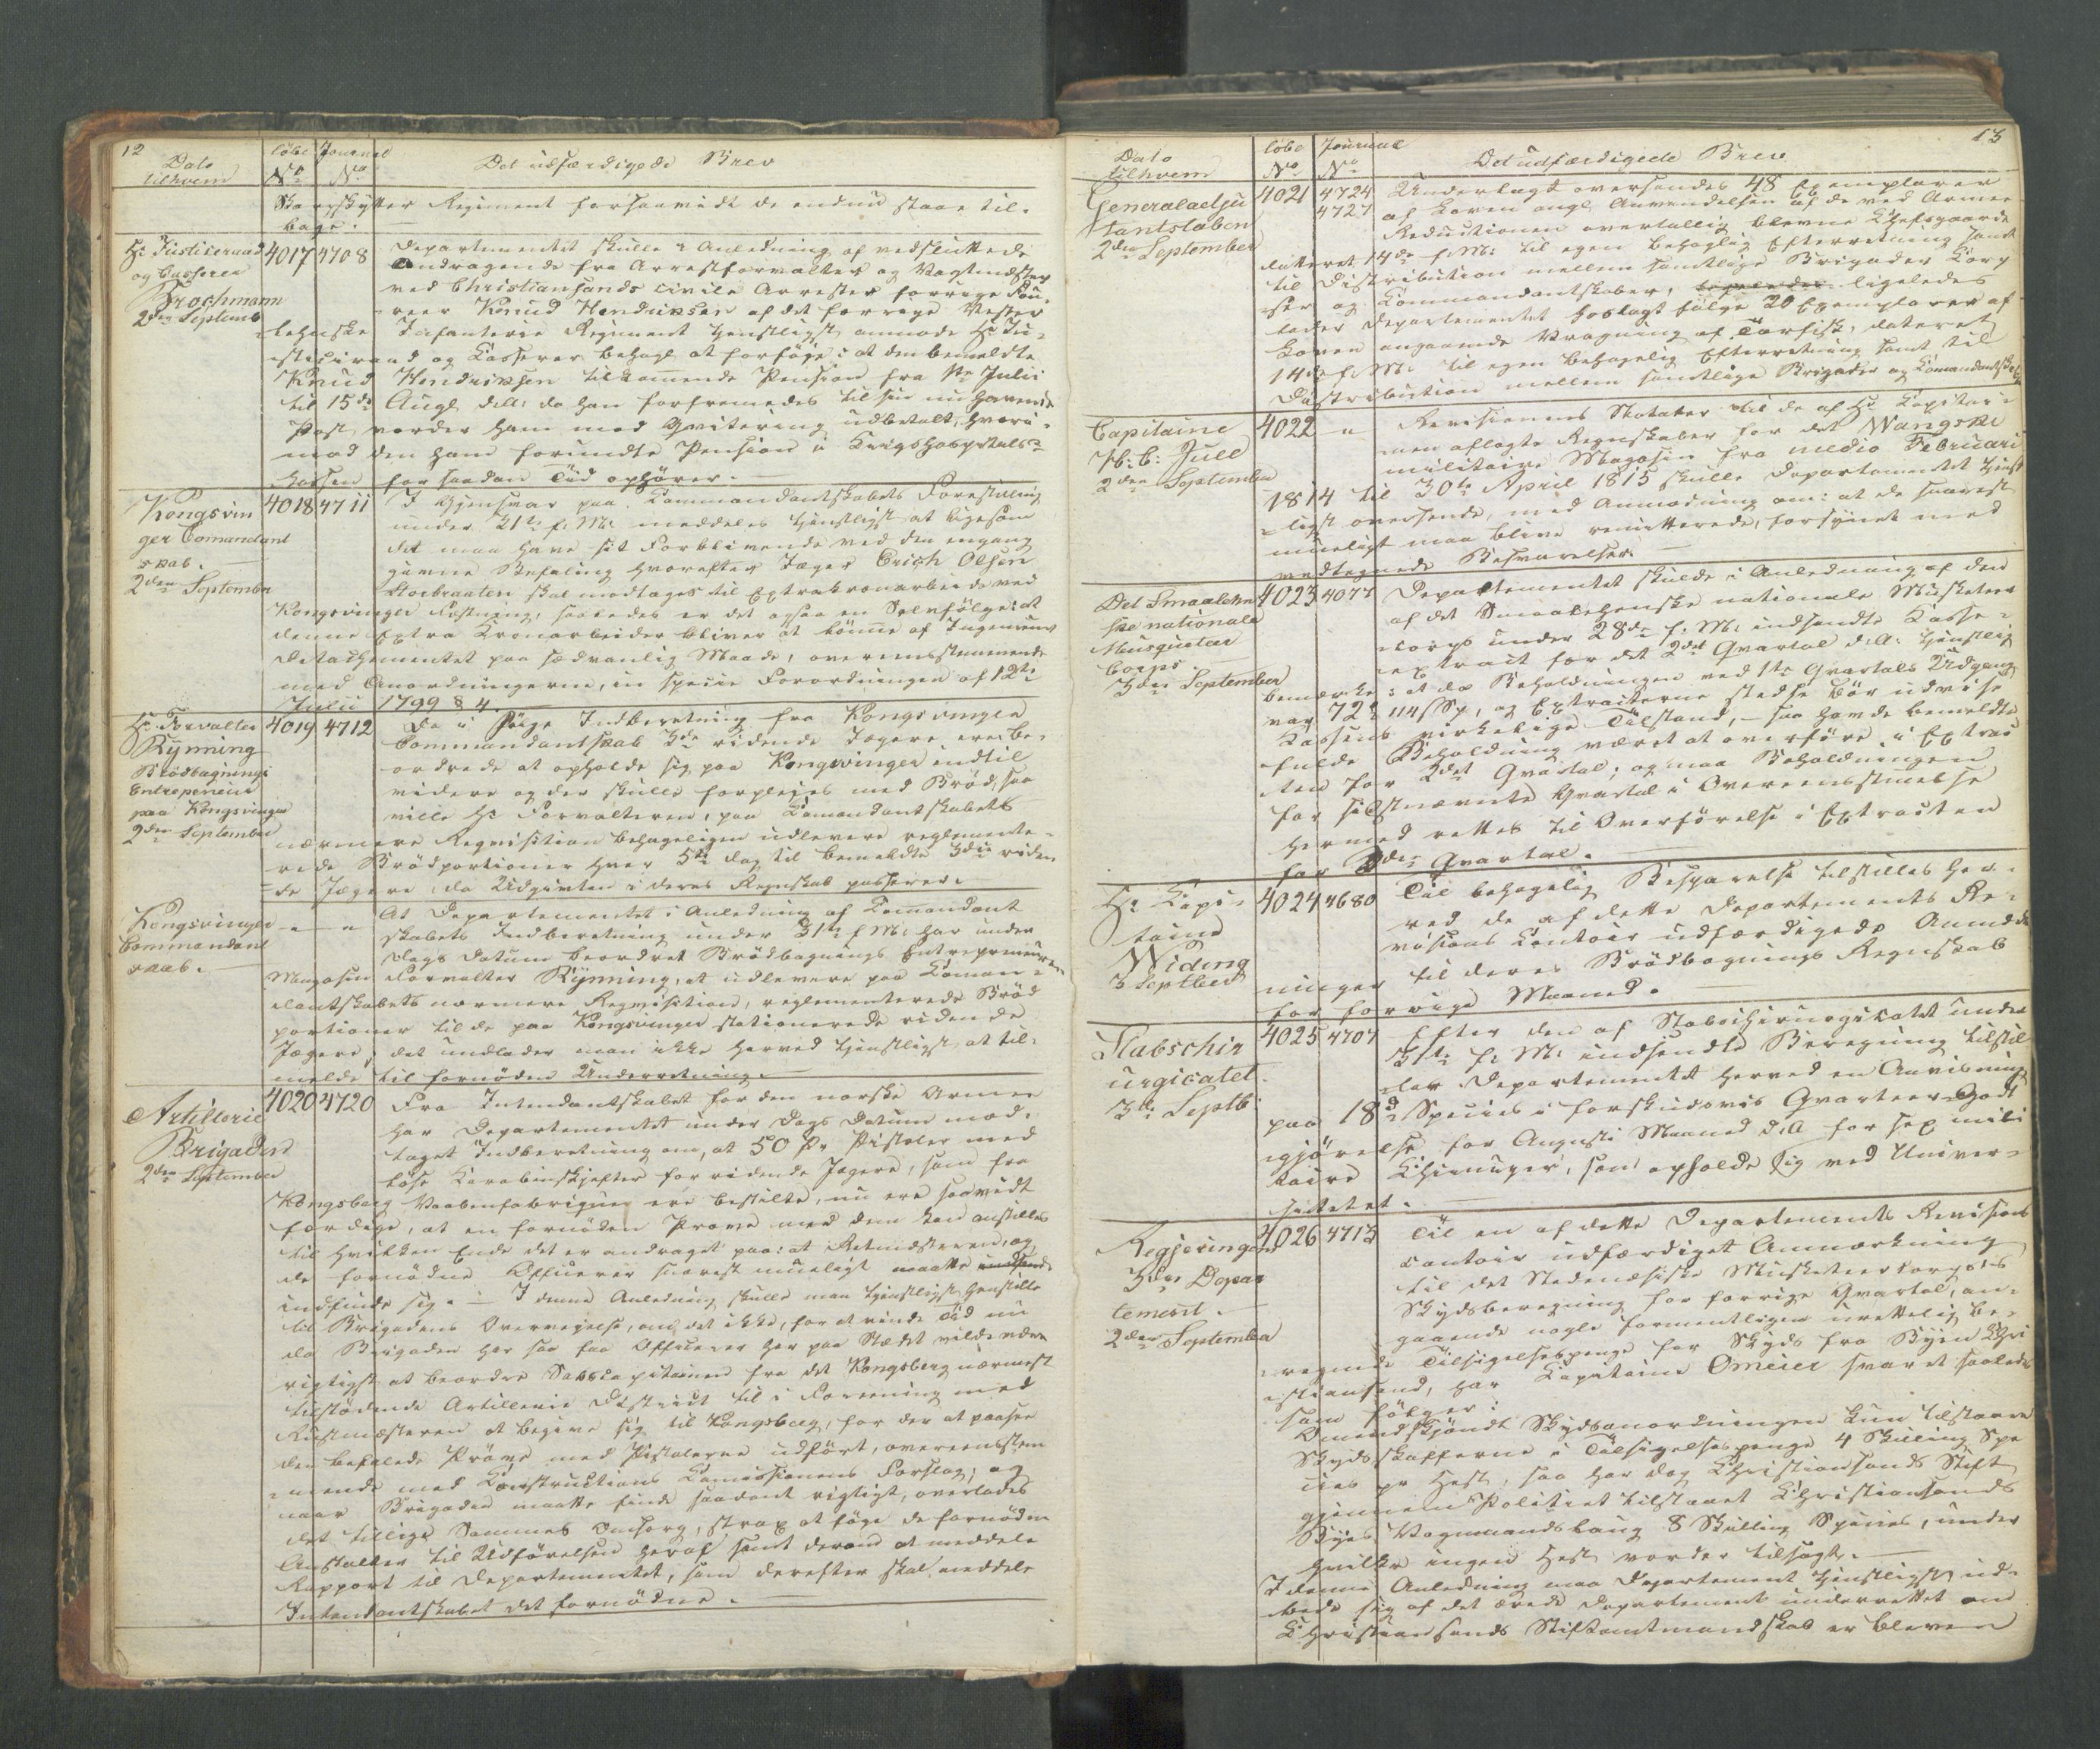 12
Dato
tilhvem
löbe
No
Journal
No
Det udfærdigede Brev
Bergskytter Regiment forsaavidt de endnu staae til-
bage.
Hr Justiceraad
og Casserer
Brochmann
2den Septemb
4017
4708
Departementet skulle i Anledning af vedsluttede
Andragende fra Arrestforvalter og Vagtmester
ved Christiansands civile Arrester forrige Fou-
reer Knud Hendriksen af det forrige Vester
lehnske Infanterie Regiment tjenstligst anmode Hr Ju-
sticeraad og Casserer behagl at forføje: at den bemeldte
Knud Hendriksen tilkommende Pension fra 1te Julii
til 15de Augl d: A: da han forfremedes til sin nuhavende
Post, vorder ham mod Qvitering udbetalt, hvori-
mod den ham forundte Pension i Krigshospitals-
Kassen for saadan Tiid ophører.
Kongsvin
ger Comandant
skab.
2den September
4018
4711
I Gjensvar paa Commandantskabets Forestilling
under 31te f: M: meddeles tjenstligst at ligesom
det maa have sit Forblivende ved den engang
givne Befaling hvorefter Jæger Erich Olsen
Storbraaten skal modtages til Extrakronarbeide ved
Kongsvinger Fæstning, saaledes er det ogsaa en Selvfölge: at
denne Extra Kronarbeider bliver at lönne af Ingenieur
Detachementet paa sædvanlig Maade, overensstemmende
med Anordningerne, in specie Forordningen af 12te
Julii 1799 § 4.
Hr Forvalter
Rynning
Brödbagnings
Entrepeneur
paa Kongsvinger
2den September
4019
4712
Da i fölge Indberetning fra Kongsvinger
Commandantskab 3de ridende Jægere ere be-
ordrede at opholde sig paa Kongsvinger indtil
videre og der skulle forplejes med Bröd, saa
ville Hr Forvalteren, paa Comandantskabets
nærmere Reqvisition behageligen udlevere reglemente-
rede Brödportioner hver 5te Dag til bemeldte 3de riden
de Jægere, da Udgivten i deres Regnskab passerer.
Kongsvinger
Commandant
skab.
At Departementet i Anledning af Comandant
skabets Indberetning under 31te f: M: har under
Dags Datum beordret Brödbagnings Entrepreneuren
Magasin Forvalter Rynning, at udlevere paa Coman-
dantskabets nærmere Reqvisition, reglementerede Bröd
portioner til de paa Kongsvinger stationerede ridende
Jægere, det undlader man ikke herved tjenstligst at til-
melde til fornöden Underretning.
Artillerie
Brigaden
2den September
4020
4720
Fra Intendantskabet for den norske Armee
har Departementet under Dags Datum mod-
taget Indberetning om, at 50 Pr Pistoler med
löse Karabinskjefter for ridende Jægere, som fra
Kongsberg Vaabenfabriqven ere bestilte, nu ere saavidt
færdige, at en fornöden Pröve med dem kan anstilles
til hvilken Ende det er andraget paa: at Rustmesteren og
de fornödne Officerer snarest mueligt maatte
indfinde sig. – I denne Anledning skulle man tjenstligst henstille
til Brigadens Overvejelse, om det ikke, for at vinde Tiid nu
da Brigaden har saa faa Officerer her paa Stædet vilde være
rigtigst at beordre Capitainen fra det Kongsberg nærmest
tilstödende Artillerie District til i Forening med
Rustmesteren at begive sig til Kongsberg, for der at paasee
den befalede Pröve med Pistolerne udfört, overeensstem
mende med Constructions Comissionens Forslag; og
naar Brigaden maatte finde saadant rigtigt, overlades
det tillige Sammes Omsorg, strax at föge de fornödne
Anstalter til Udförelsen heraf samt derom at meddele
Rapport til Departementet, som derefter skal meddele
Intendantskabet det fornödne.
13
Dato
tilhvem
löbe
No
Journal
No
Det udfærdigede Brev
Generaladju
tantstaben
2den September
4021
4724
4727
Underlagt oversendes 48 Exemplarer
af Loven angl Anvendelsen af de ved Armee
Reductionen overtallig blevne Chefsgaarde
dateret 14de f: M: til egen behaglig Efterretning samt
til Distribution mellem samtlige Brigader Corp
ser og Commandantskaber, ligeledes
lader Departementet hoslagt fölge 20 Exemplarer af
Loven angaaende Vragning af Törfisk, dateret
14de f: M: til egen behagelig Efterretning samt til
Distribution mellem samtlige Brigader og Comandantskaber
Capitaine
H: C: Juell
2den September
4022
Revisionens Notater til de af Hr Capitai-
nen aflagte Regnskaber for det Wangske
militaire Magasin fra medio Februari
1814 til 30te April 1815 skulle Departementet tjenst
ligst oversende, med Anmodning om: at de snarest
mueligt maa blive remitterede, forsynet med
vedtegnede Besvarelser.
Det Smaalehn
ske nationale
Musqueteer
Corps
3den September
4023
4077
Departementet skulde i Anledning af den
af det Smaalehnske nationale Musketeer
corps under 28de f: M: indsendte Casse-
extract for det 2det Qvartal d: A: tjenstlig
bemærke: at da Beholdningen ved 1te Qvartals Udgang
var 72 114 ß Sp, og Extracterne stedse bör udvise
Cassens virkelige Tilstand, – saa havde bemeldte
fulde Beholdning været at overföre i Extrac
ten for 2det Qvartal; og maa Beholdningen
for sidstnævnte Qvartal i Overeensstemmelse
hermed rettes til Overförelse i Extracten
for 3die Qvartal.
Hr Capi-
taine
Widing
3 Septber
4024
4680
Til behagelig Besvarelse tilstilles her-
ved de af dette Departements Re-
visions Contoir udfærdigede Anmærk
ninger til deres Brödbagnings Regnskab
for forrige Maaned.
Stabschir
urgicatet
3de Septb
4025
4707
Efter den af Stabschirurgicatet under
31te f: M: indsendte Beregning tilstil
ler Departementet herved en Anvisning
paa 18 Species i forskudsvis Qvarteer Godt
gjörelse for Augusti Maaned d: A for sex mili
taire Chirurger, som opholde sig ved Univer-
sitetet.
Regjeringens
3die Depar
tement.
2den September
4026
4713
Til en af dette Departements Revisions
Contoir udfærdiget Anmærkning
til det Nedenæsiske Musketeercorps's
Skydsberegning for forrige Qvartal, an-
gaaende nogle formentligen urettelig be-
regnede Tilsigelsespenge for Skyds fra Byen Chri
stiansand, har Capitaine Omeier svaret saaledes
som fölger:
Omendskjöndt Skydsanordningen kun tilstaaer
Skydsskafferne i Tilsigelsespenge 4 Skilling Spe
cies pr Hest, saa har dog Christiansands Stift
gjennem Politiet tilstaaet Christiansands
Byes Vognmandslaug 8 Skilling Species, under
hvilke ingen Hest vorder tilsagt.
I denne Anledning maa Departement tjenstligst ud-
bede sig af det ærede Departement underrettet om
Christiansands Stiftamtmandskab er bleven